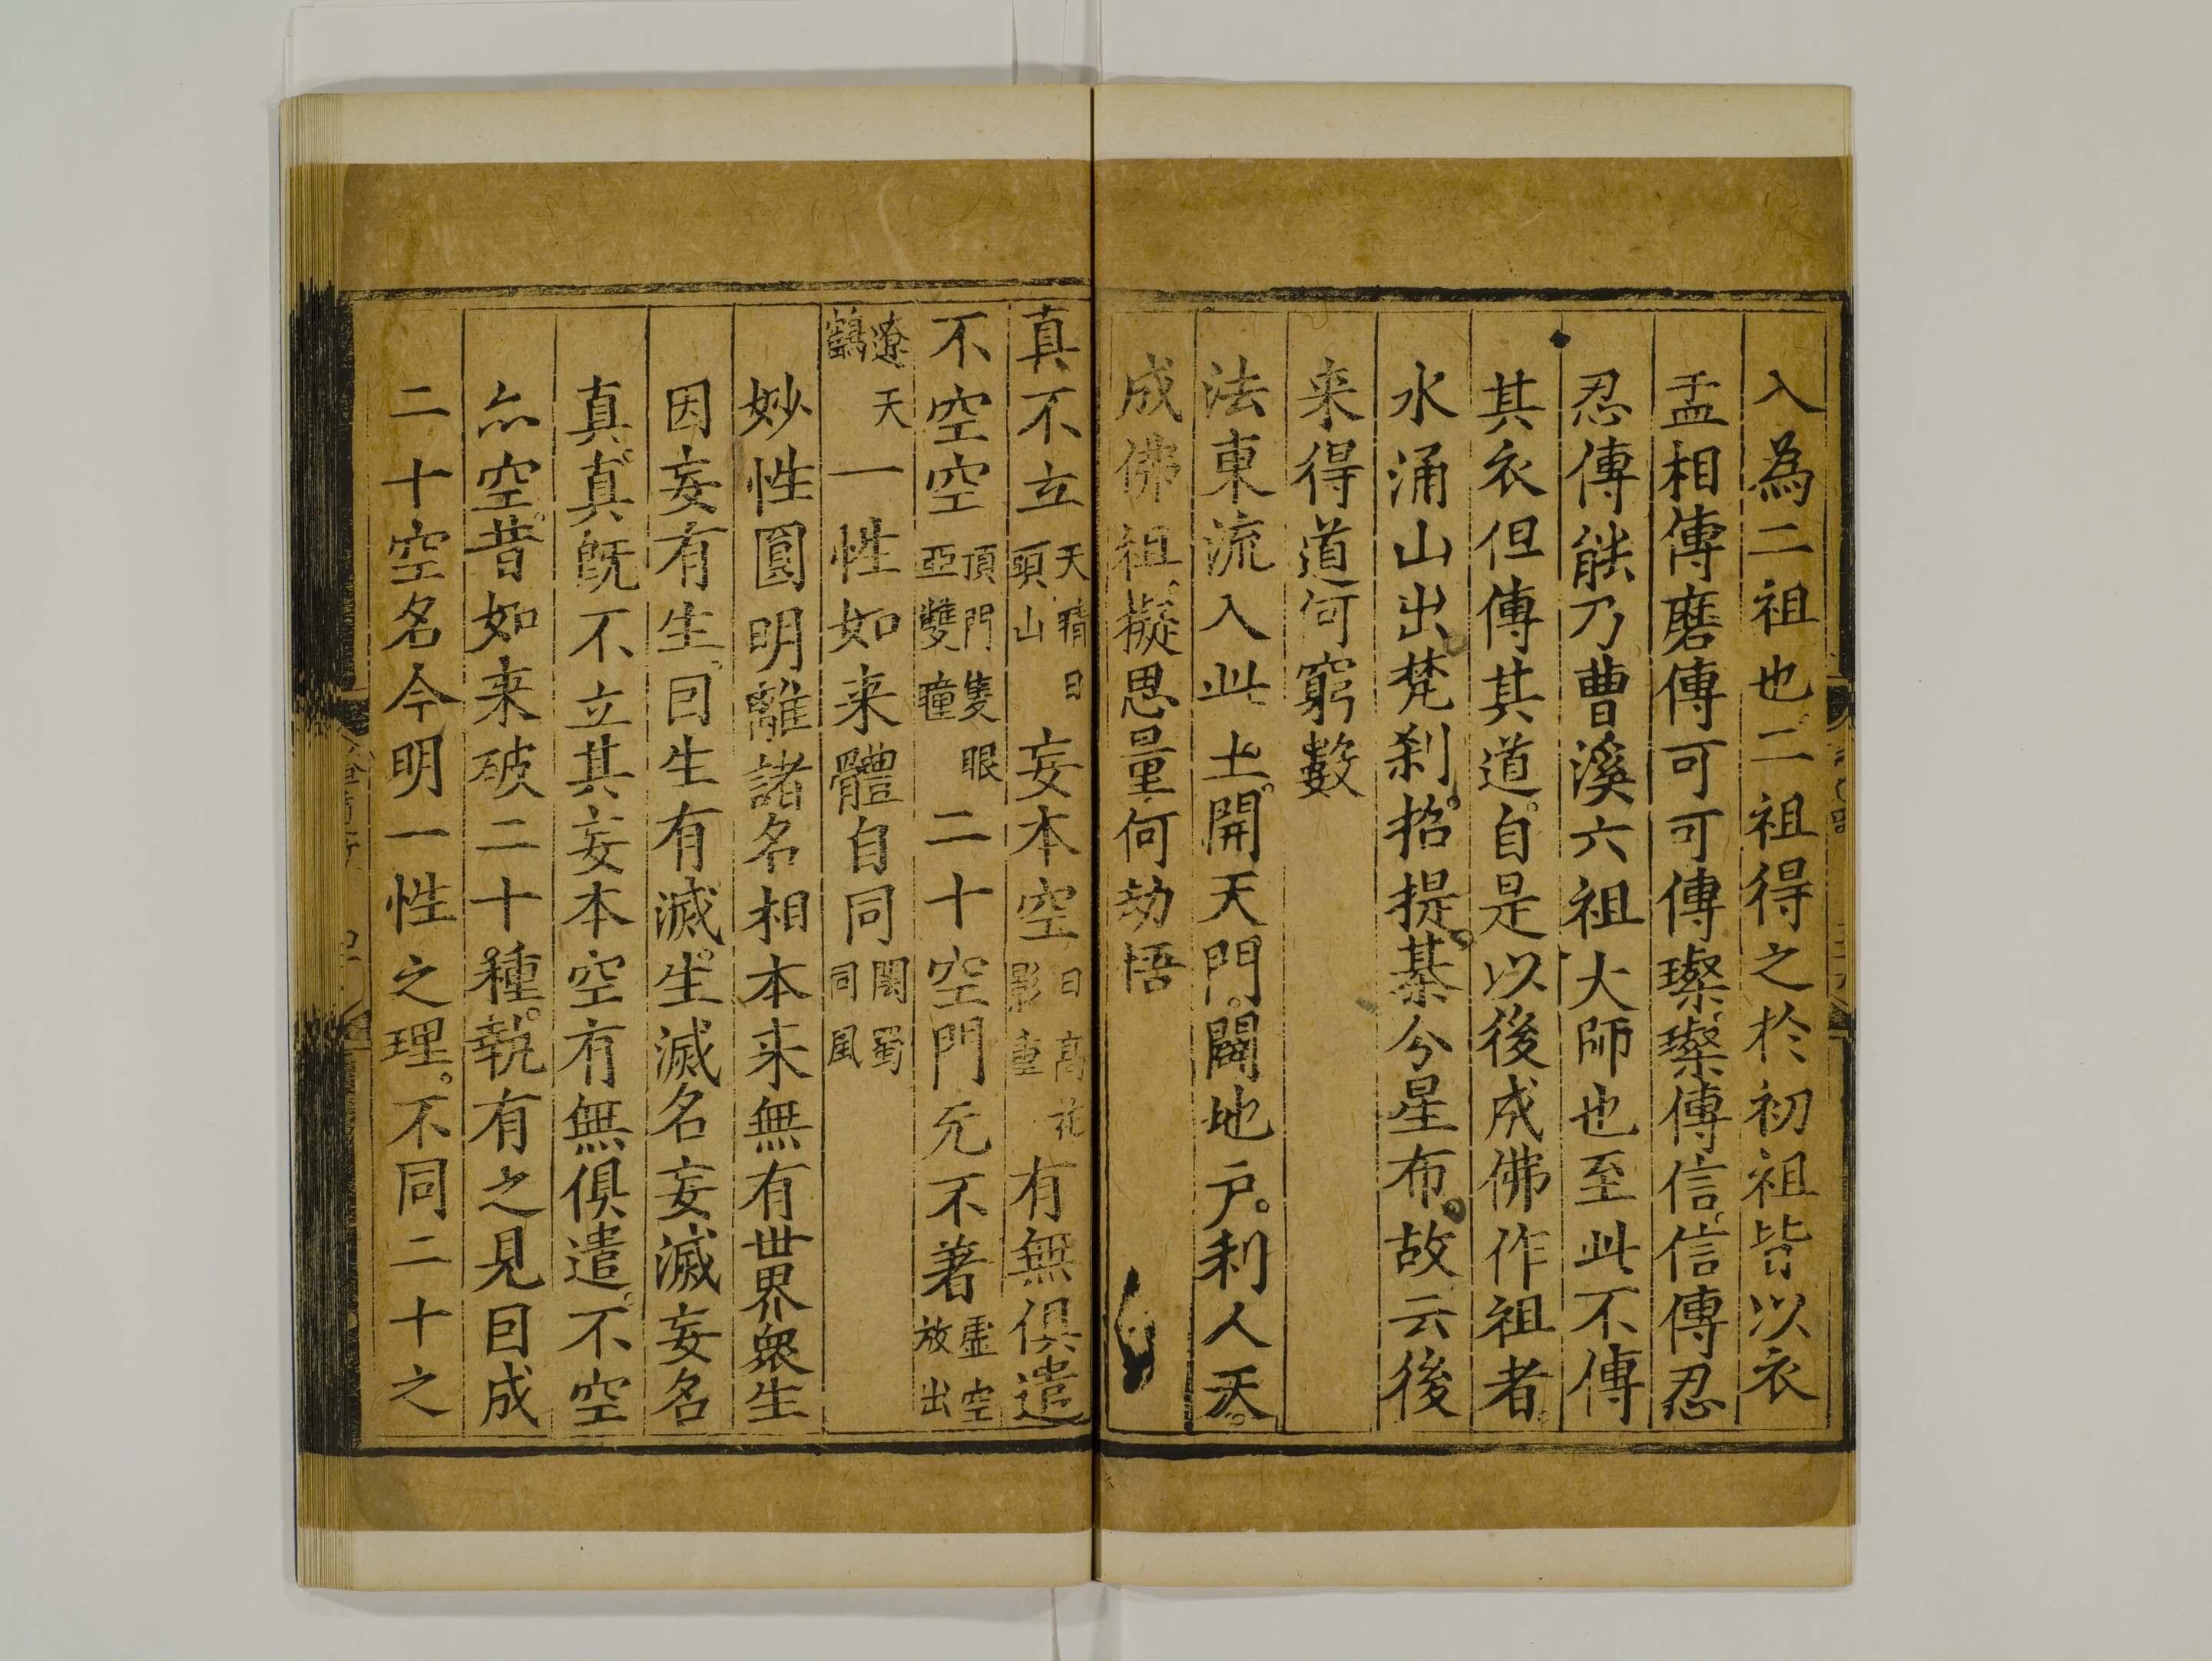 入為二祖也二祖得之於初祖皆以衣
盂相傳磨傳可可傳璨璨傳信信傳忍
忍傳能乃曹溪六祖大師也至此不傳
其衣但傳其道自是以後成佛作祖者
水涌山出梵刹招提棊分星布故云後
来得道何窮數
法東流入此土開天門闢地户利人天
成佛祖擬思量何劫悟
真不立天晴日頭山妄本空日高花影重有無俱遣
不空空頂門隻眼亞雙瞳二十空門元不著虛空放出
遼天鶻一性如来體自同閩蜀同風
妙性圓明離諸名相本来無有世界衆生
因妄有生囙生有滅生滅名妄滅妄名
真真既不立其妄本空有無俱遣不空
亦空昔如来破二十種執有之見囙成
二十空名今明一性之理不同二十之